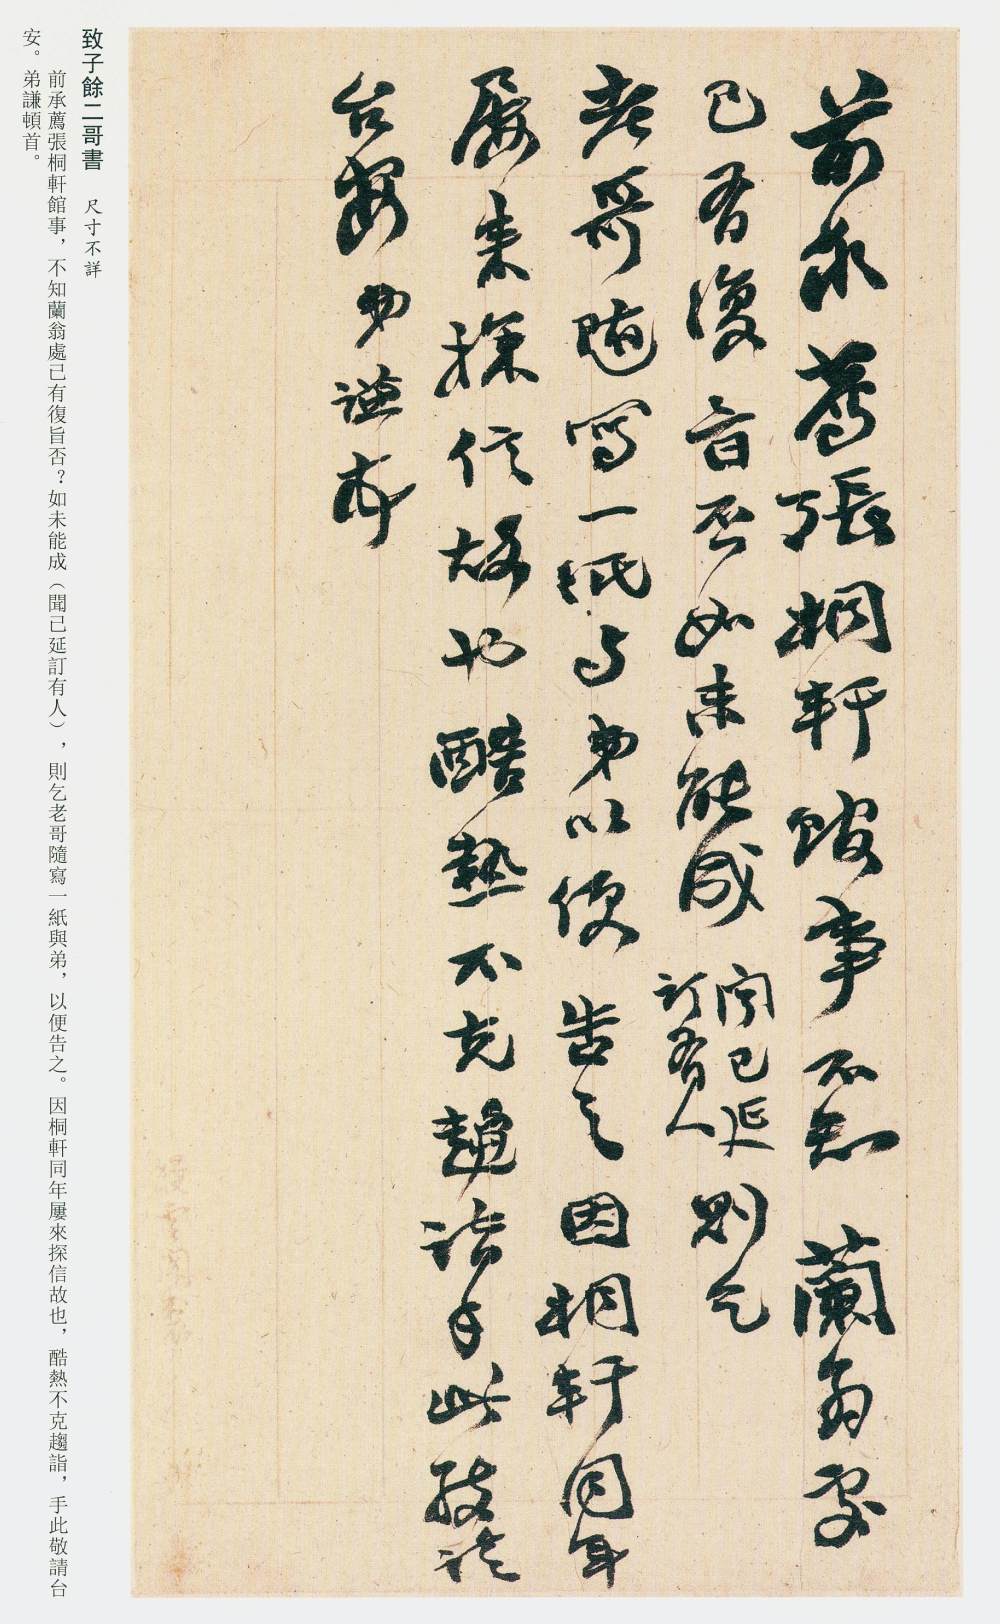 前承薦張桐軒館事不知蘭翁處
已有復音否如未能成聞已延訂有人則乞
老哥隨寫一紙与弟以便告之因桐軒同年
屢来探信故也酷熱不克趨詣手此敬請
台安弟謙頓首
致子餘二哥書 尺寸不詳
前承薦張桐軒館事，不知蘭翁處己有復旨否？如未能成（聞己延訂有人），則乞老哥隨寫一紙與弟，以便告之。因桐軒同年屢來探信故也，酷熱不克趨詣，手此敬請台
安。弟謙頓首。